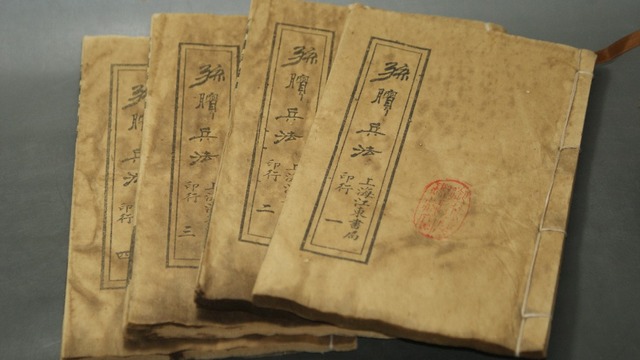 孫臏兵法
上海江東書局
印行
一
孫臏兵法
上海江
印行
二
孫臏兵法
上海江
印行
三
孫臏兵法
印行
四